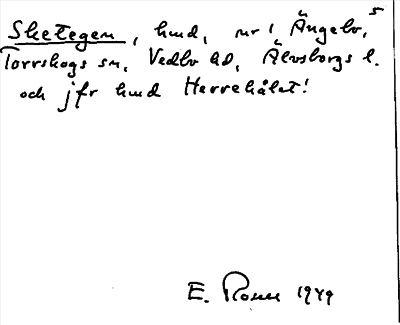 Sketegen, hmd, nr 1 Ängebo, 5
Torrskogs sn, Vedbo hd, Älvsborgs l.
och jfr hmd Herrehålet!
E. Rosell 1949